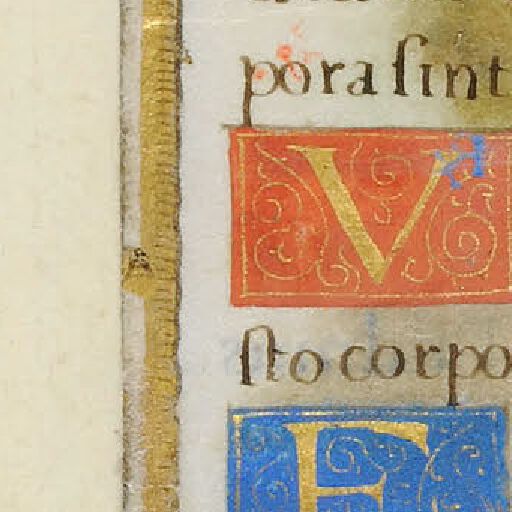 pora ſint
V
ſto corpo
E